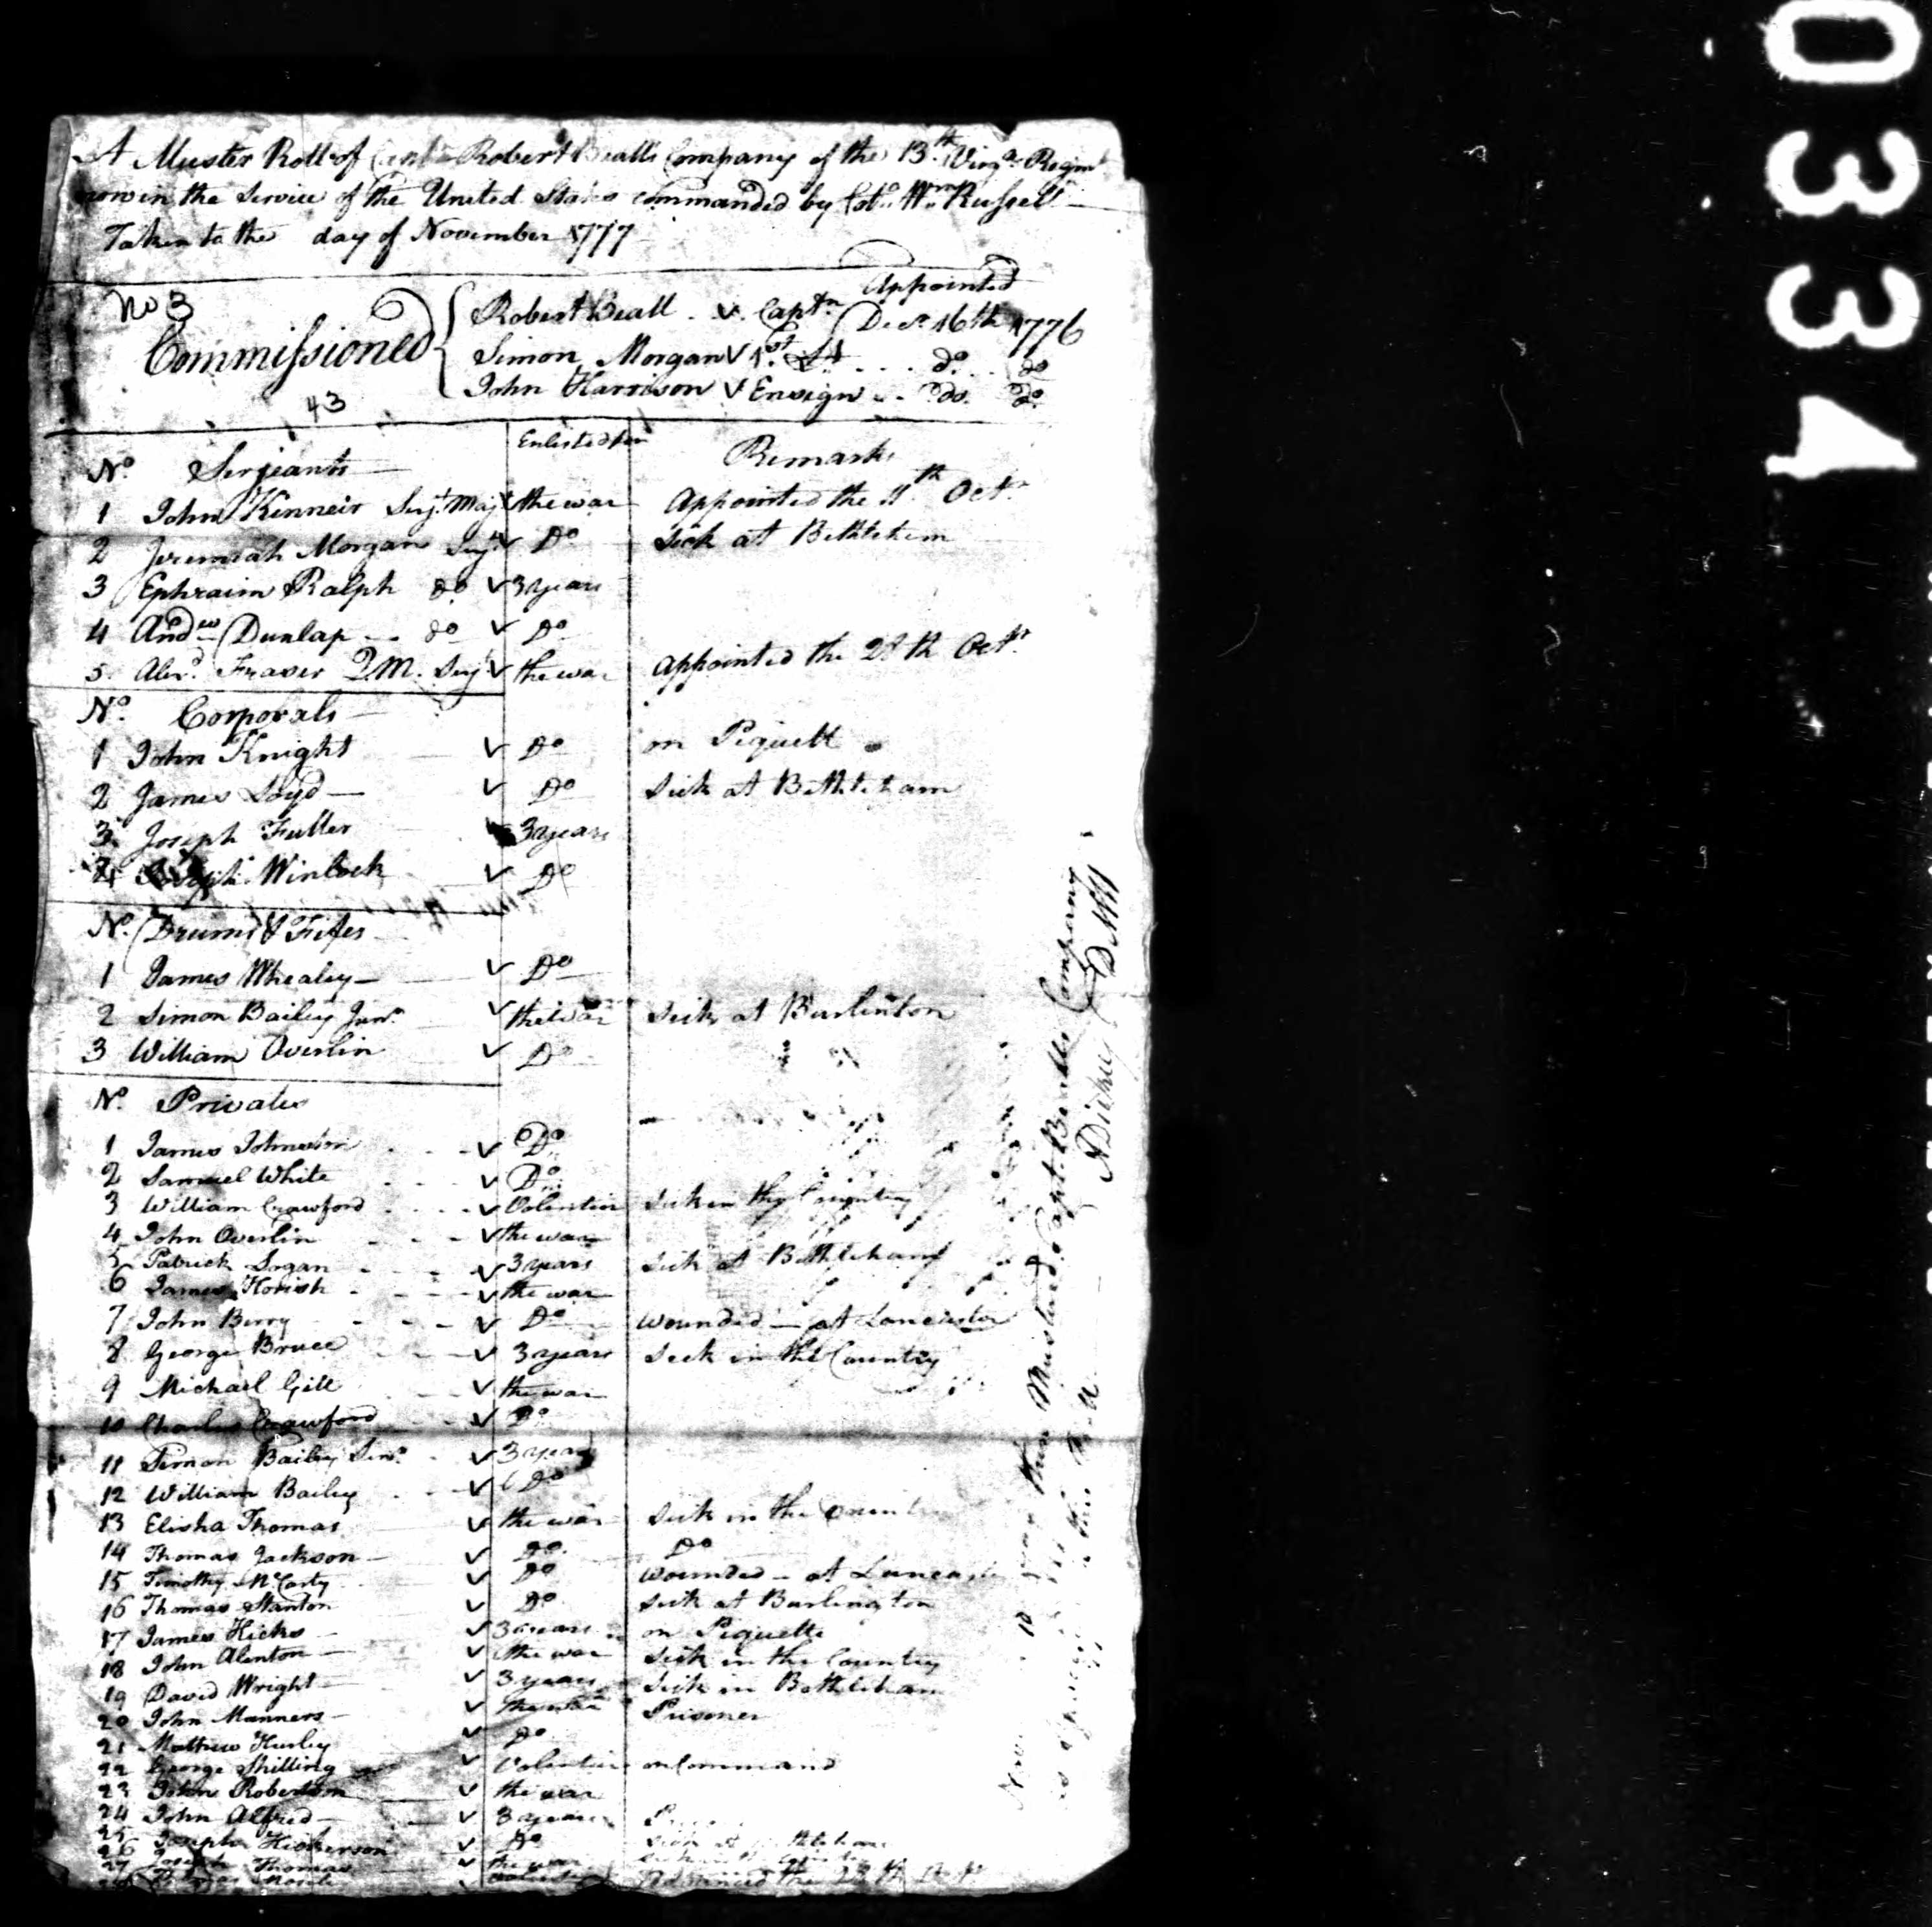 A Muster Roll of Capt Robert Bealls Company of the 13th Virga Regmt
now in the Service of the United States commanded by Colo. Wm Russell
Taken to the day of November 1777
Appointed
No 3
Commissioned
Robert Beall Captn Decr 16th 1776
Simon Morgan 1st Lt do do
John Harrison Ensign do do
43
No Serjeants Enlisted for Remarks
1 John Kinneir Serjt Majr the war Appointed the 11th Octr
2 Jeremiah Morgan Serjt Do Sick at Bethlehem
3 Ephraim Ralph do 3 years
4 Andw Dunlap do Do
5 Alexr Fraser Q.M. Serjt the war appointed the 28th Octr
No Corporals
1 John Knight Do on Piquett
2 James Loyd Do Sick at Bethleham
3 Joseph Fuller 3 years
4 Winlock Do
No Drums & Fifes
1 James Whealey Do
2 Simon Bailey Junr the war Sick at Burlinton
3 William Overlin Do
No Privates
1 James Johnston Do
2 Samuel White Do
3 William Crawford Volentier Sick in the Country
4 John Overlin the war
5 Patrick Logan 3 years Sick at Bethleham
6 James the war
7 John Berry Do wounded at Lancaster
8 George Bruce 3 years Sick in the Country
9 Michael Gill the war
10 Charles Crawford Do
11 Simon Bailey Senr 3 years
12 William Bailey Do
13 Elisha Thomas the war Sick in the
14 Thomas Jackson Do Do
15 Timothy McCarty Do wounded at
16 Thomas Stanton Do Sick at Burlington
17 James Hicks 3 years on Piquette
18 John Alenton the war Sick in the Country
19 David Wright 3 years Sick in Bethleham
20 John Manners the war Prisoner
21 Mathew Hurley Do
22 George Shilling Volentier on Command
23 John Robertson the war
24 John Alfred 3 years
25 Joseph Do Sick at
26 Joseph Thomas the war
27 the
Mustered Capt. Bealls Company
0334